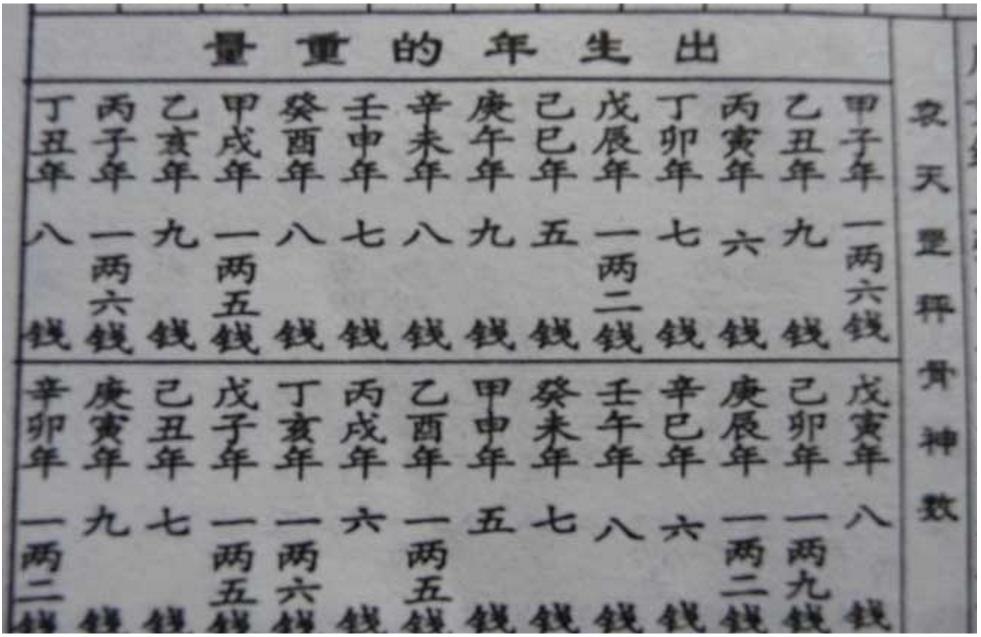 袁天罡秤骨神数
出生年的重量
甲子年 一两六钱
乙丑年 九钱
丙寅年 六钱
丁卯年 七钱
戊辰年 一两二钱
己巳年 五钱
庚午年 九钱
辛未年 八钱
壬申年 七钱
癸酉年 八钱
甲戌年 一两五钱
乙亥年 九钱
丙子年 一两六钱
丁丑年 八钱
戊寅年 八钱
己卯年 一两九钱
庚辰年 一两二钱
辛巳年 六钱
壬午年 八钱
癸未年 七钱
甲申年 五钱
乙酉年 一两五钱
丙戌年 六钱
丁亥年 一两六钱
戊子年 一两五钱
己丑年 七钱
庚寅年 九钱
辛卯年 一两二钱